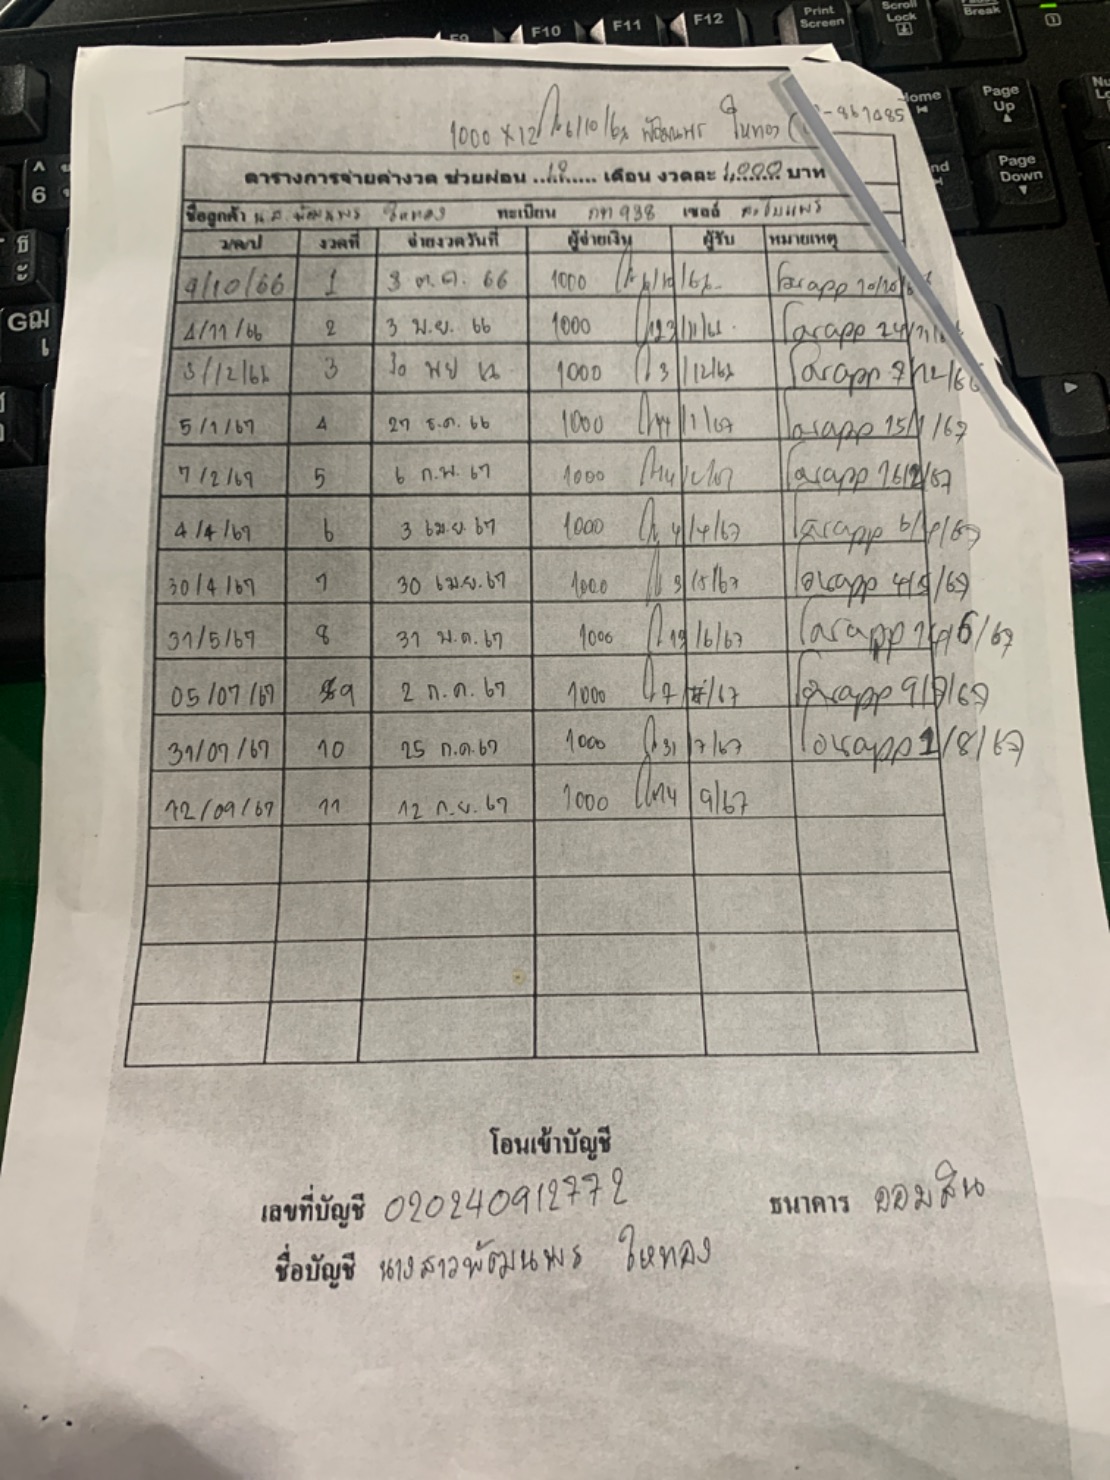 F9 F10 F11 F12 Print Screen Scroll Lock Break
Home Page Up
Page Down
6
Gฌ เ
1000 x 12 6/10/66 พัฒนพร ใหทอง -867485
ตารางการจ่ายค่างวด ช่วยผ่อน ..12..... เดือน งวดละ 1,000 บาท
ชื่อลูกค้า น.ส. พัฒนพร ใหทอง ทะเบียน กท 938 เซลล์
ว/ด/ป งวดที่ จ่ายงวดวันที่ ผู้จ่ายเงิน ผู้รับ หมายเหตุ
9/10/66 1 3 ต.ค. 66 1000 โอนapp 10/10/66
4/11/66 2 3 พ.ย. 66 1000 23/11/66 โอนapp 24/11/66
3/12/66 3 30 พย 1000 3/12/66 โอนapp 7/12/66
5/1/67 4 27 ธ.ค. 66 1000 14/1/67 โอนapp 15/1/67
7/2/67 5 6 ก.พ. 67 1000 14/2/67 โอนapp 16/2/67
4/4/67 6 3 เม.ย. 67 1000 4/4/67 โอนapp 6/4/67
30/4/67 7 30 เม.ย. 67 1000 3/5/67 โอนapp 4/5/67
31/5/67 8 31 พ.ค. 67 1000 13/6/67 โอนapp 14/6/67
05/07/67 9 2 ก.ค. 67 1000 7/7/67 โอนapp 9/7/67
31/07/67 10 25 ก.ค. 67 1000 31/7/67 โอนapp 1/8/67
12/09/67 11 12 ก.ย. 67 1000 14/9/67
โอนเข้าบัญชี
เลขที่บัญชี 020240912772 ธนาคาร ออมสิน
ชื่อบัญชี นางสาวพัฒนพร ใหทอง